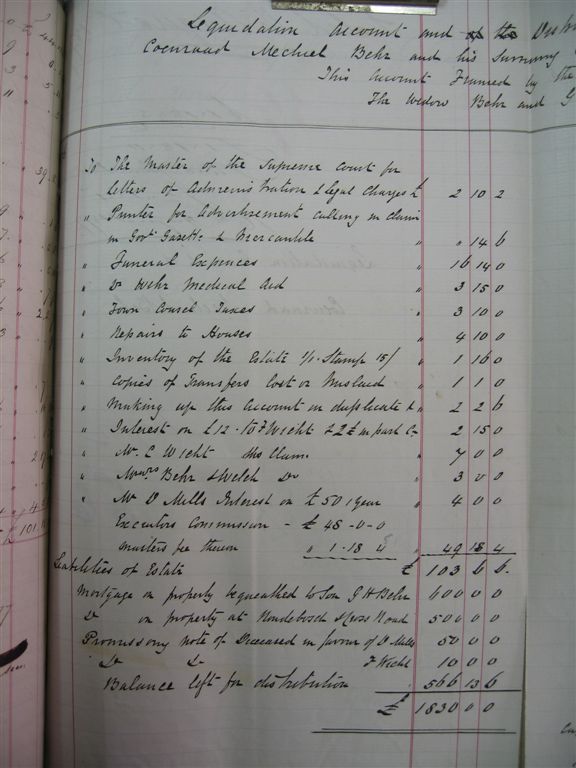 Liquidation Account and of the Distri
Coenraad Mechiel Behr and his Surviving
This Account Framed by the
The Widow Behr and G
To The Master of the Supreme Court for
Letters of Administration & Legal Charges £ 2 10 2
" Printer for Advertisement calling in claims
in Govt Gazette & Mercantile " " 14 6
" Funeral Expences " 16 14 0
" Dr Wehr Medical Aid " 3 15 0
" Town Council Taxes " 3 10 0
" Repairs to Houses " 4 10 0
" Inventory of the Estate 1/- Stamp 15/ " 1 16 0
" Copies of Transfers Lost or Mislaid " 1 1 0
" Making up this Account in duplicate & " 2 2 6
" Interest on £12. to F Wicht & 2 in part 2 15 0
" Mr. C Wicht his Claim " 7 0 0
" Messrs Behr & Welch Do " 3 0 0
" Mr D Mills Interest on £ 50 1 year " 4 0 0
Executors Commission - £ 48 -0-0
Masters fee thereon " 1.18 4 " 49 18 4
Liabilities of Estate £ 103 6 6.
Mortgage on property bequeathed to Son J H Behr 600 0 0
Do on property at Rondebosch Cross Road 500 0 0
Promissory note of Deceased in favour of D Mills 50 0 0
Do Do F Wicht 10 0 0
Balance left for distribution 566 13 6
£ 1830 0 0